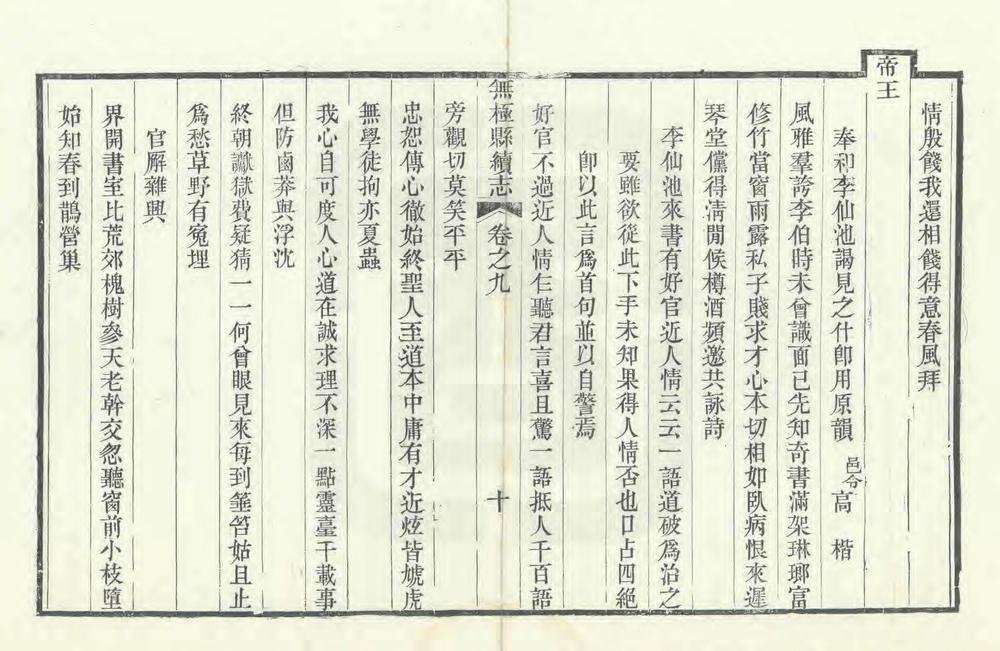 帝王
情殷餞我還相餞得意春風拜
奉和李仙池謁見之什卽用原韻 邑令高楷
風雅羣誇李伯時未曾識面已先知奇書滿架琳瑯富
修竹當窗雨露私子賤求才心本切相如臥病恨來遲
琴堂儻得清閒候樽酒頻邀共詠詩
李仙池來書有好官近人情云云一語道破爲治之
要雖欲從此下手未知果得人情否也口占四絕
卽以此言爲首句並以自警焉
好官不過近人情仁聽君言喜且驚一語抵人千百語
無極縣續志 卷之九 十
旁觀切莫笑平平
忠恕傳心徹始終聖人至道本中庸有才近炫皆虓虎
無學徒拘亦夏蟲
我心自可度人心道在誠求理不深一點靈臺千載事
但防鹵莽與浮沈
終朝讞獄費疑猜一一何曾眼見來每到箠笞姑且止
爲愁草野有寃埋
官廨雜興
界開書室比荒郊槐樹參天老幹交忽聽窗前小枝墮
始知春到鵲營巢